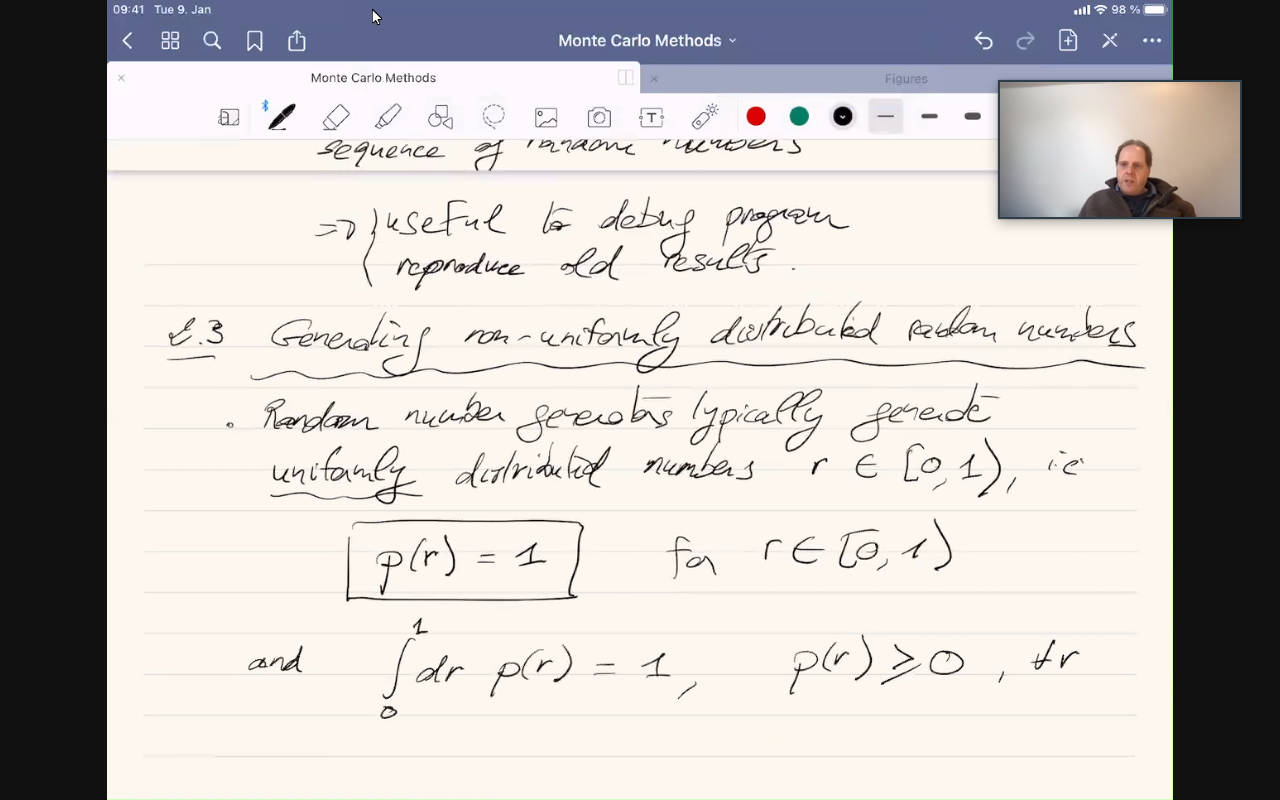 09:41 Tue 9. Jan 98 %
Monte Carlo Methods
Monte Carlo Methods Figures
sequence of random numbers
=> { useful to debug program
reproduce old results.
2.3 Generating non-uniformly distributed random numbers
. Random number generators typically generate
uniformly distributed numbers r ∈ [0,1), i.e
p(r) = 1 for r ∈ [0,1)
and ∫₀¹ dr p(r) = 1, p(r) ⩾ 0, ∀r